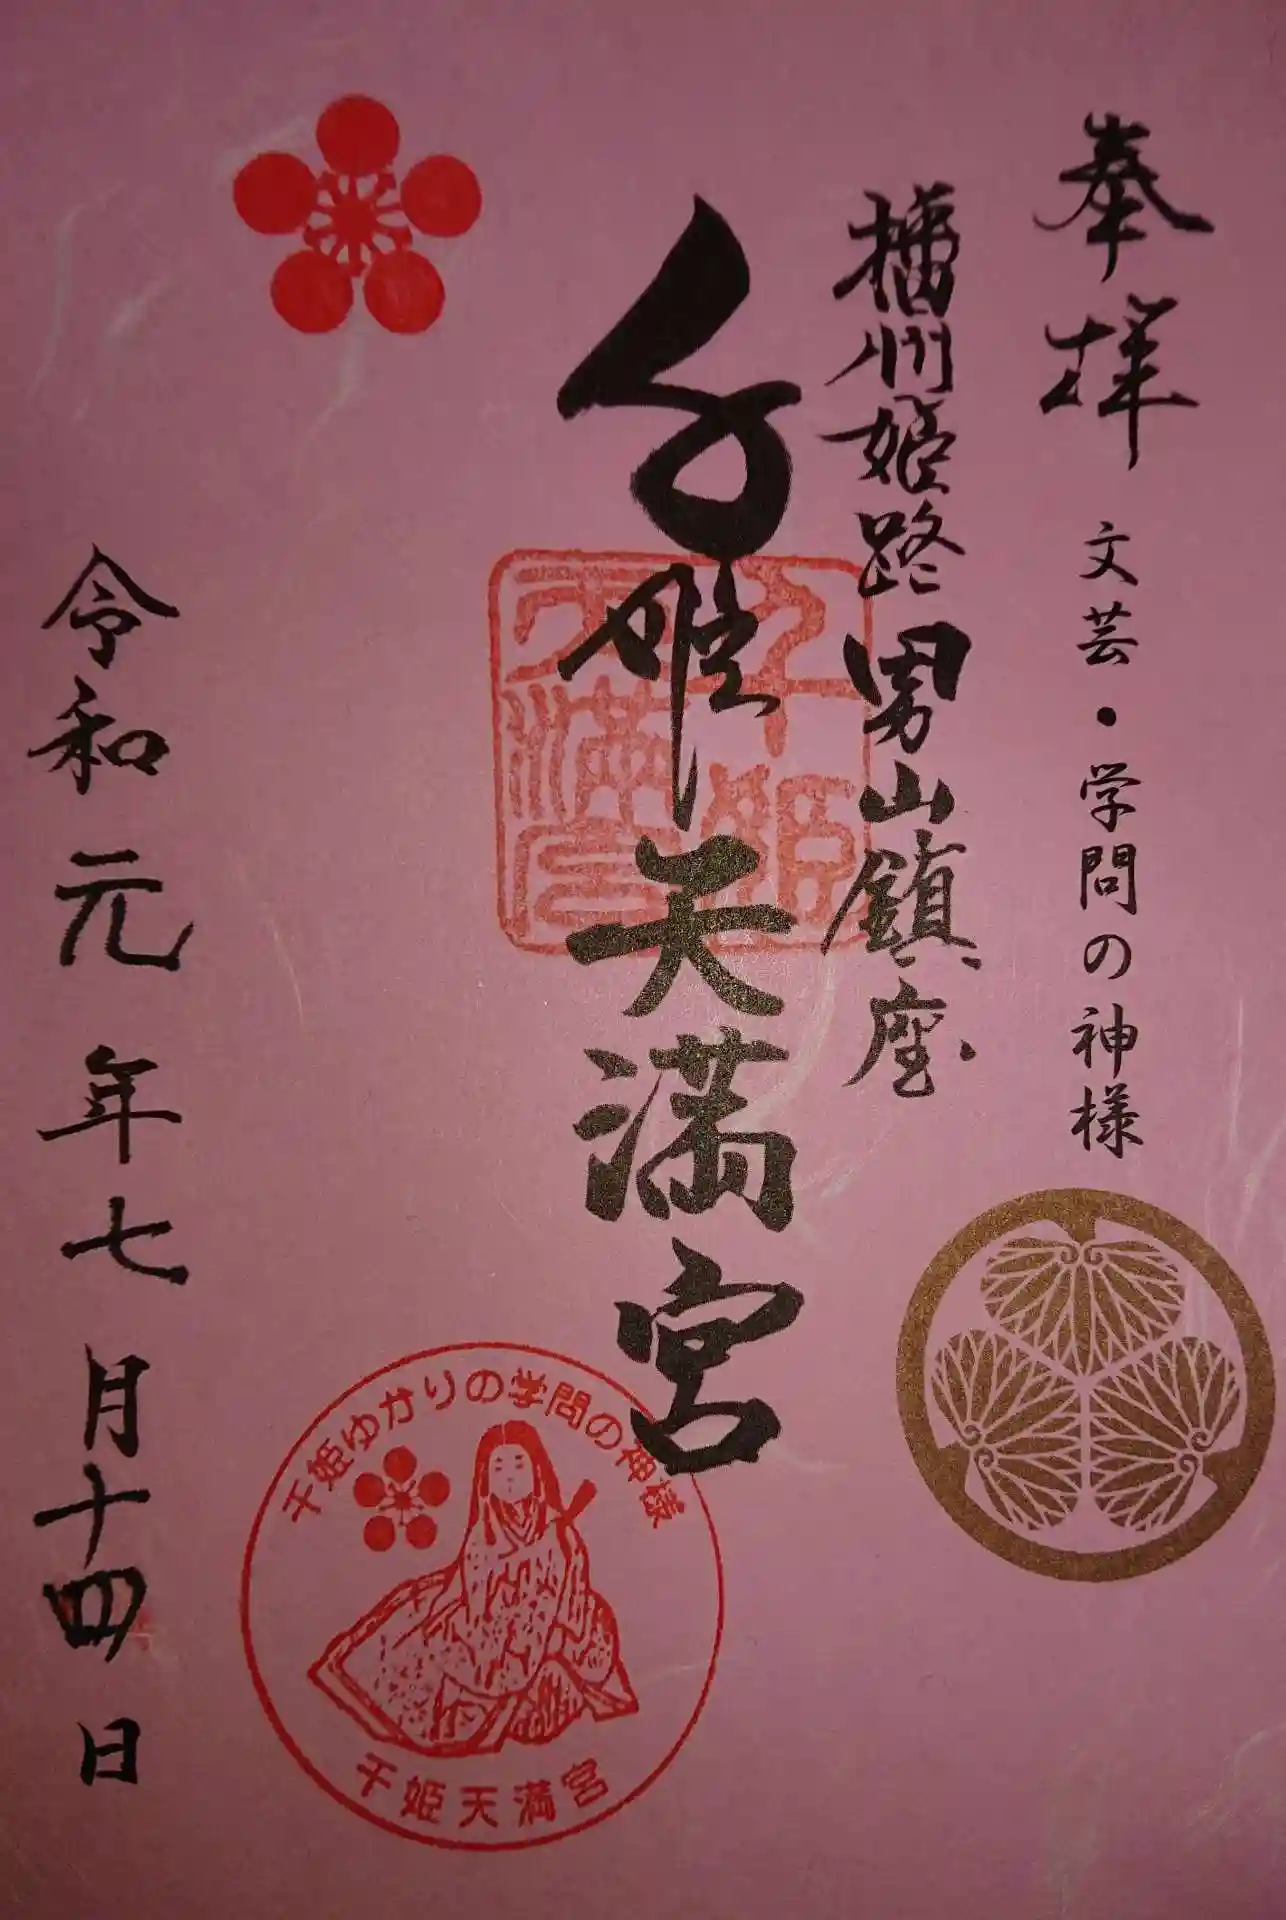 奉拝
文芸・学問の神様
播州姫路男山鎮座
千姫天満宮
千姫
天満宮
令和元年七月十四日
千姫ゆかりの学問の神様
千姫天満宮